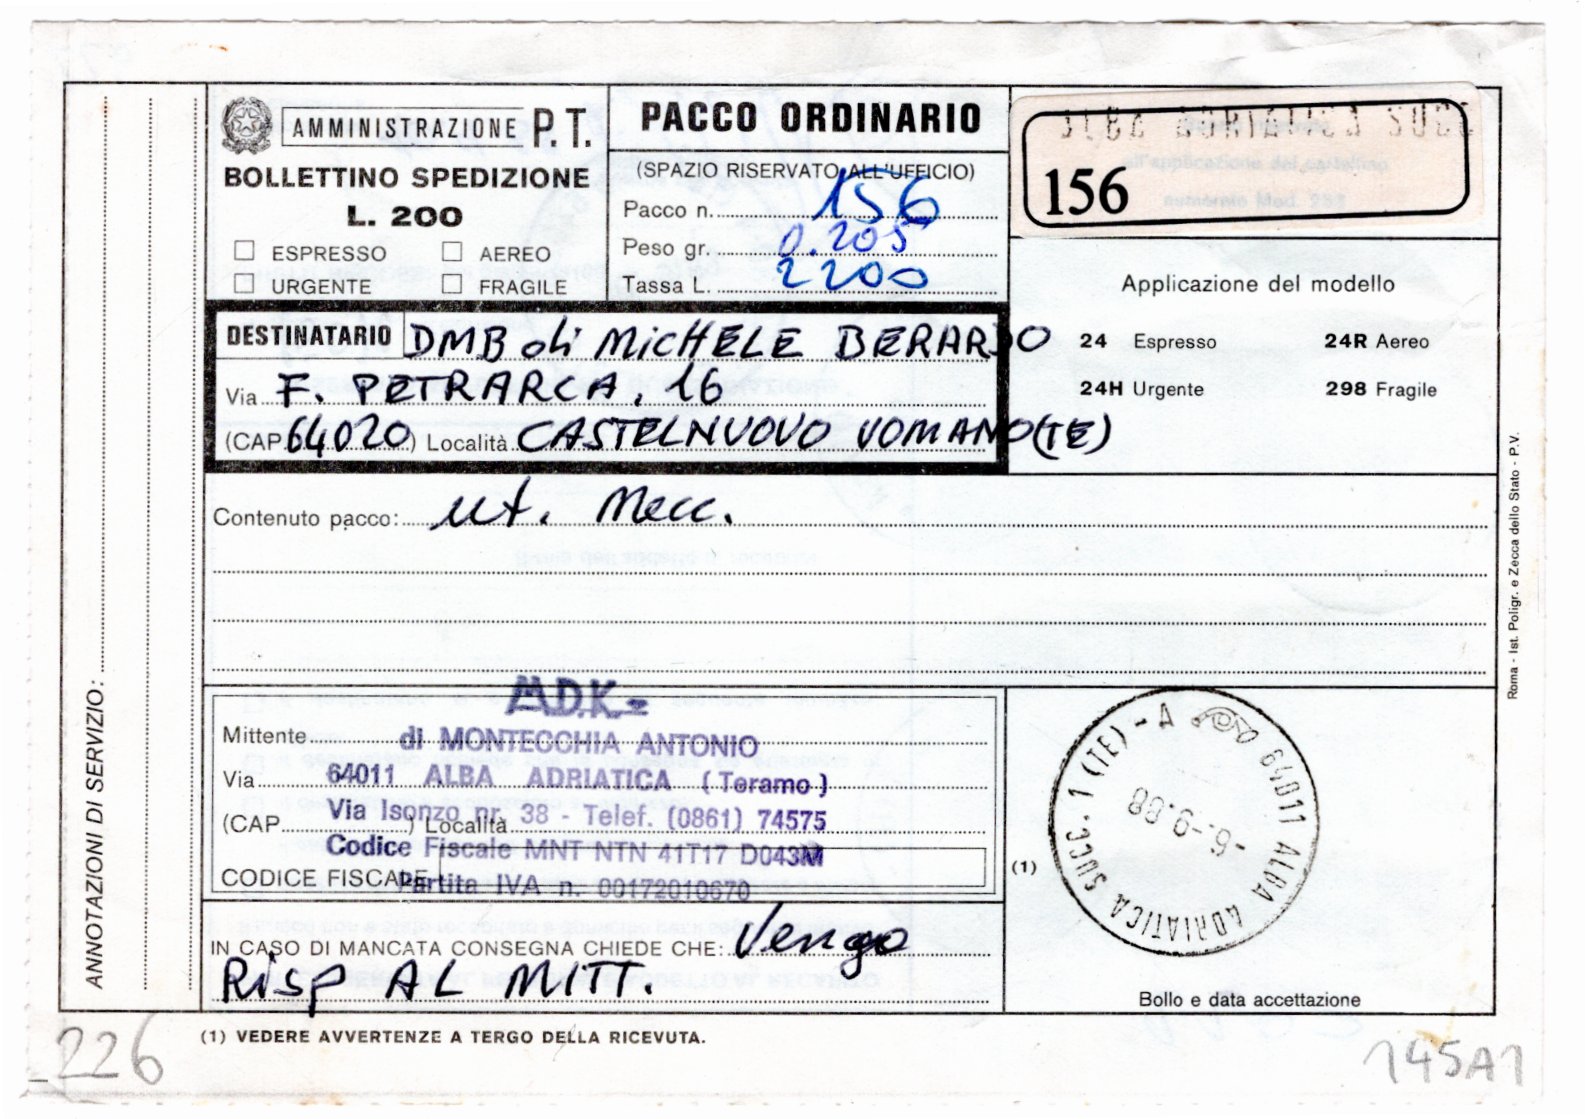 AMMINISTRAZIONE P.T.
BOLLETTINO SPEDIZIONE
L. 200
ESPRESSO AEREO
URGENTE FRAGILE
PACCO ORDINARIO
(SPAZIO RISERVATO ALL'UFFICIO)
Pacco n. 156
Peso gr. 0.205
Tassa L. 2200
ALBA ADRIATICA SUCC
156
Applicazione del modello
24 Espresso 24R Aereo
24H Urgente 298 Fragile
DESTINATARIO DMB di MicHELE BERARDO
Via F. PETRARCA, 16
(CAP 64020) Località CASTELNUOVO VOMANO (TE)
Contenuto pacco: ut. Mecc.
ANNOTAZIONI DI SERVIZIO:
M.D.K.
Mittente di MONTECCHIA ANTONIO
Via 64011 ALBA ADRIATICA (Teramo)
(CAP ) Località Via Isonzo nr. 38 - Telef. (0861) 74575
Codice Fiscale MNT NTN 41T17 D043M
CODICE FISCALE Partita IVA n. 00172010670
IN CASO DI MANCATA CONSEGNA CHIEDE CHE: Vengo
Risp AL MITT.
(1)
64011 ALBA ADRIATICA SUCC. 1 (TE) - A
-6.-9.88
Bollo e data accettazione
Roma - Ist. Poligr. e Zecca dello Stato - P.V.
(1) VEDERE AVVERTENZE A TERGO DELLA RICEVUTA.
226
145A1